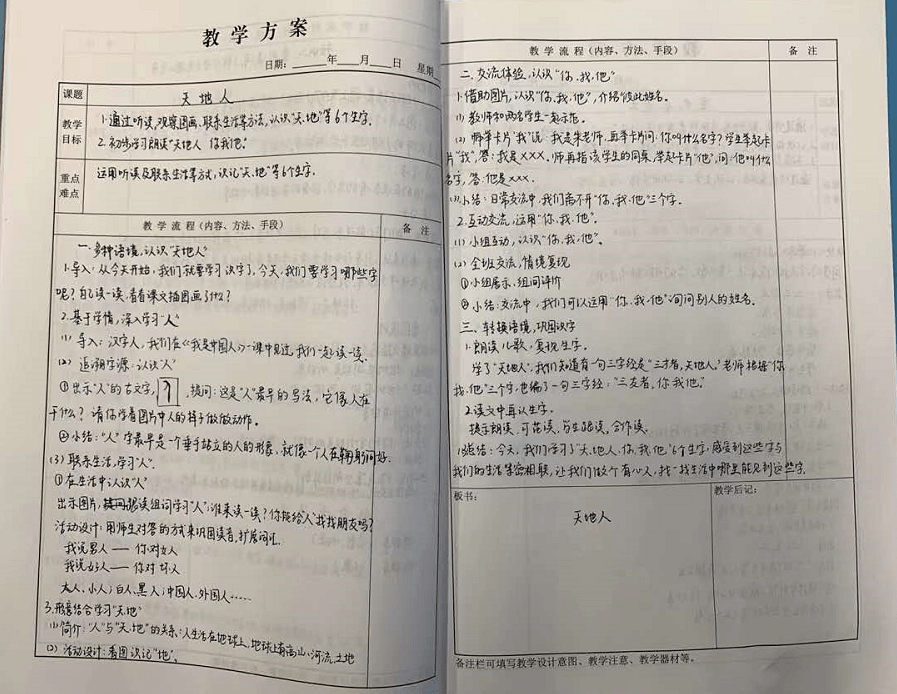 教学方案
日期:______年___月___日 星期
课题
天地人
教学目标
1.通过听读,观察图画,联系生活等方法,认识"天、地"等6个生字。
2.初步学习朗读"天地人 你我他"
重点难点
运用听读及联系生活等方式,识记"天、地"等6个生字。
教学流程(内容、方法、手段)
备 注
一.多种语境,认识"天地人"
1.导入:从今天开始,我们就要学习识字了,今天,我们要学习哪些字
呢?自己读一读,看看课文插图画了什么?
2.基于学情,深入学习"人"
(1)导入:汉字人,我们在《我是中国人》一课中见过,我们一起读一读。
(2)追溯字源:认识"人"
①出示"人"的古文字,提问:这是"人"最早的写法,它像人在
干什么?请你学着图片中人的样子做做动作。
②小结:"人"字最早是一个垂手站立的人的形象,就像一个人在鞠躬问好。
(3)联系生活,学习"人".
①在生活中认识"人"
出示图片,读组词学习"人":谁来读一读?你能给"人"找找朋友吗?
活动设计:用师生对答的方式来巩固读音,扩展词汇.
我说男人——你对女人
我说好人——你对坏人
大人、小人;白人、黑人;中国人、外国人……
3.形意结合学习"天地"
(1)简介:"人"与"天地"的关系:人生活在地球上,地球上有高山、河流、土地
(2)活动设计:看图识记"地"。
教学流程(内容、方法、手段)
备 注
二.交流体验,认识"你、我、他"
1.借助图片,认识"你、我、他",介绍彼此姓名。
(1)教师和两名学生一起示范。
(2)师举卡片"我"说:我是李老师,再举卡片问:你叫什么名字?学生举起卡
片"我",答:我是XXX,师再指该学生的同桌,举起卡片"他",问:他叫什么
名字,答:他是XXX.
(3)小结:日常交流中,我们离不开"你、我、他"三个字.
2.互动交流,运用"你、我、他".
(1)小组互动,认识"你、我、他"。
(2)全班交流,情境复现
①小组展示,组间评价
②小结:交流中,我们可以运用"你、我、他"询问别人的姓名.
三、转换语境,巩固识字
1.朗读儿歌,复现生字.
学了"天地人",我们知道有一句三字经是"三才者,天地人",老师根据"你
我、他"三个字,也编了一句三字经:"三友者,你我他。"
2.读文中再认生字.
提示朗读,可范读、师生跟读、合作读.
总结:今天,我们学习了"天、地、人、你、我、他"6个生字,感受到这些字与
我们的生活紧密相联,让我们做个有心人,找一找生活中哪里能见到这些字.
板书:
天地人
教学后记:
备注栏可填写教学设计意图、教学注意、教学器材等。